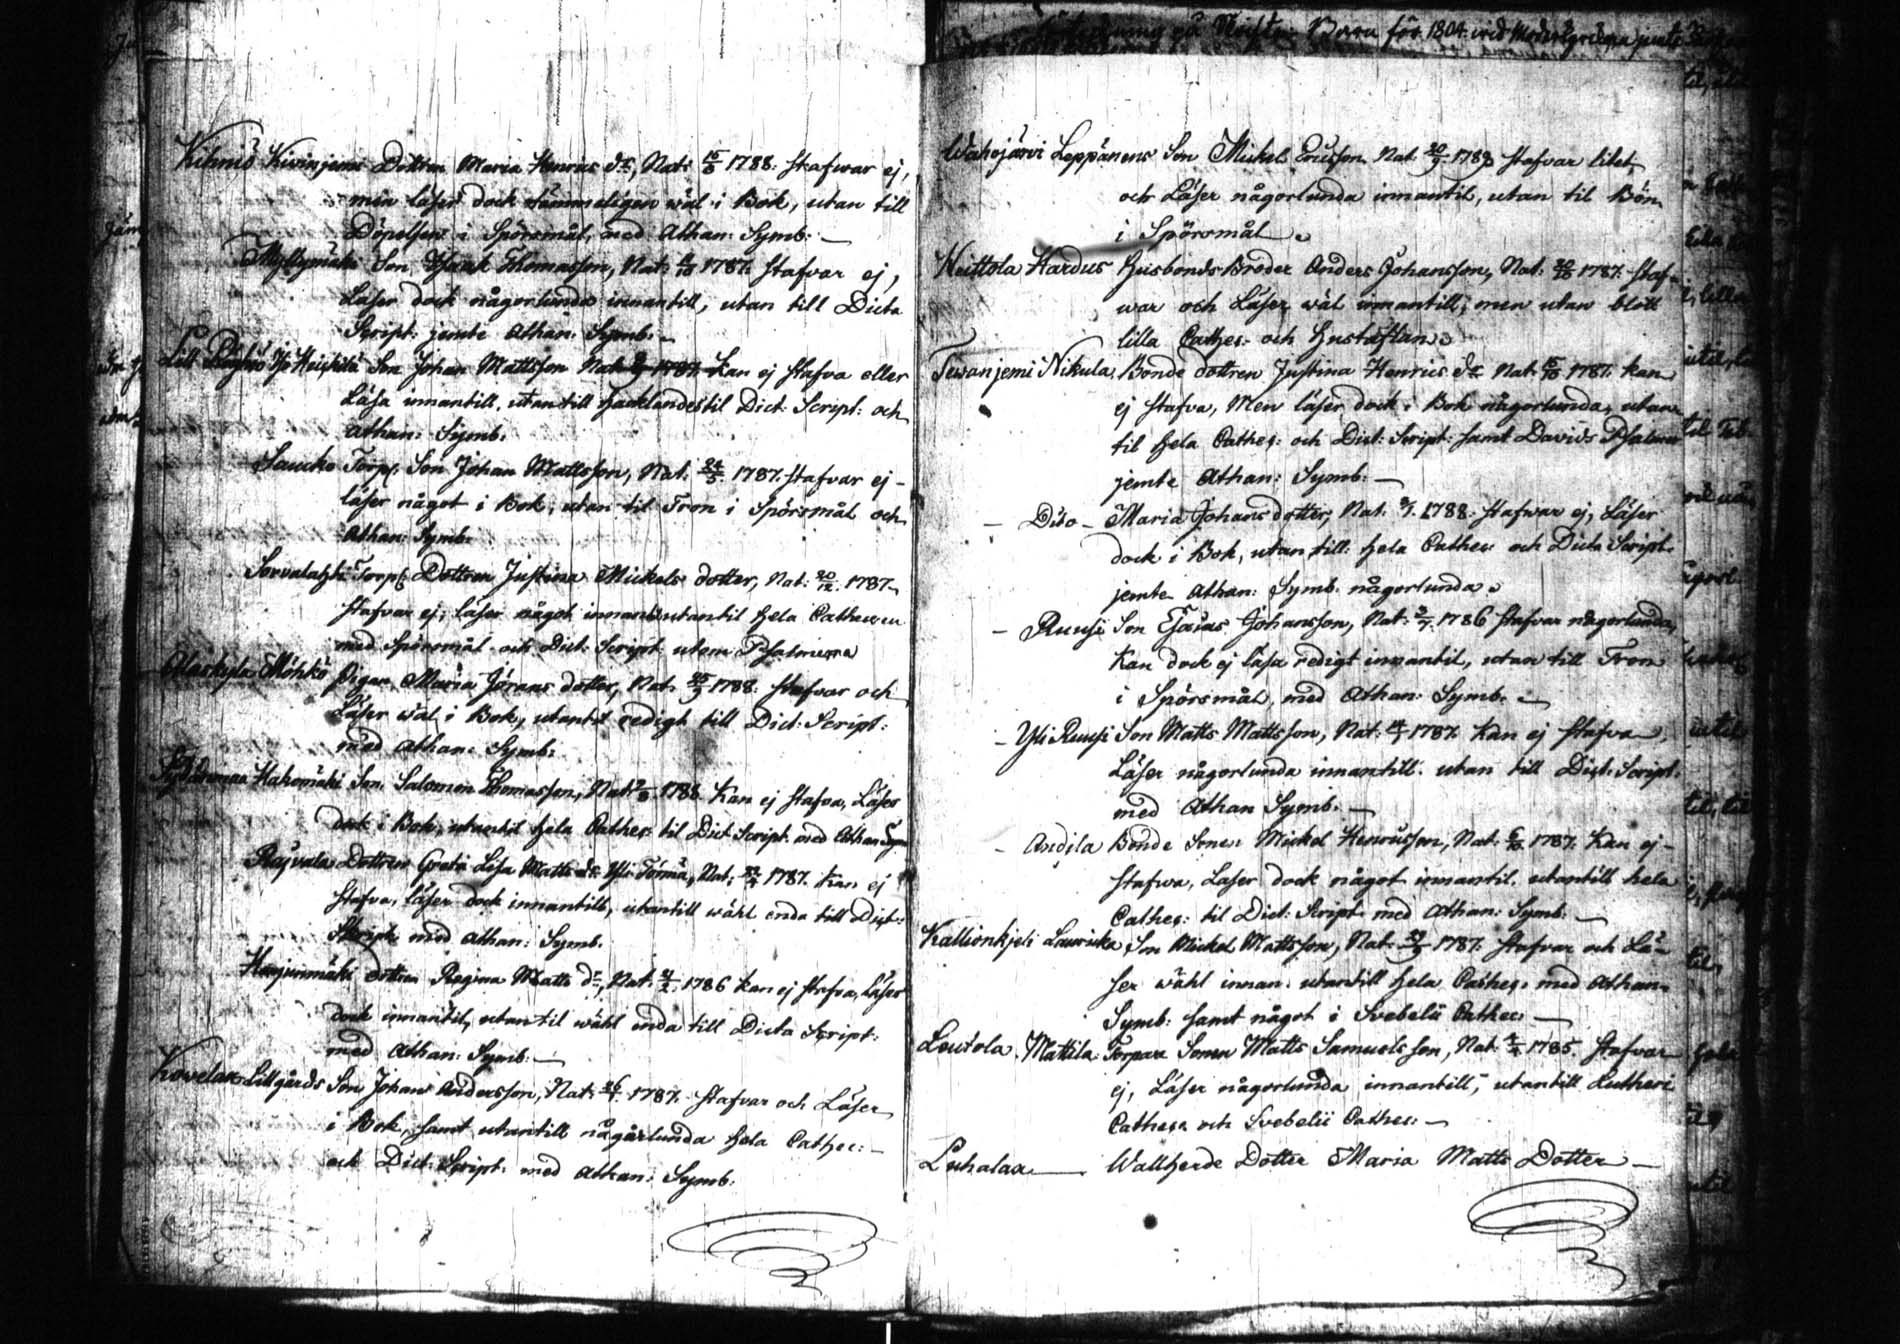 Kihniö Kivinjemi Dottren Maria Henrics dr, Nat: 15/8 1788. Stafwar ej,
men läser dock tämmeligen wäl i Bok, utan till
Döpelsen i Spörsmål, med Athan: Symb: —
Myllymäki Son Isaak Thomasson, Nat: 1787. Stafvar ej,
Läser dock någorlunda innantill, utan till Dicta
Script: jemte Athan: Symb: —
Heiskilä Son Johan Mattsson Nat: 1787. Kan ej stafva eller
Läsa innantill, utantill hacklandes til Dict: Script: och
Athan: Symb:
Saucko Torp: Son Johan Mattsson, Nat: 24/5 1787. stafvar ej -
läser något i Bok, utan til Tron i Spörsmål och
Athan: Symb:
Torp: Dottren Justina Mickels dotter, Nat: 20/12 1787.
stafvar ej, läser något innan utantil hela Cathecen
med Spörsmål och Dict: Script utom Psalmerna
Alaskylä Möhkö Pigan Maria Jörans dotter, Nat: 25/9 1788. Stafvar och
Läser wäl i Bok, utantil redigt till Dict: Script:
med Athan: Symb:
Hakomäki Son Salomon Thomasson, Nat: 1788. Kan ej stafva, Läser
dock i Bok, utantil hela Cathec: til Dict Script med Athan Symb
Rajvala Dottren Greta Lisa Matts dr Yli Törmä, Nat: 1787. Kan ej
stafva, läser dock innantill, utantill wähl enda till Dict:
Script med Athan: Symb.
Harjunmäki dottren Regina Matts dr, Nat: 1786 kan ej stafva, Läser
dock innantil, utantil wähl enda till Dicta Script:
med Athan: Symb: —
Kovelax Lillgårds Son Johan Andersson, Nat: 1787. Stafvar och Läser
i Bok, samt utantill någårlunda hela Cathec: —
och Dict: Script: med Athan: Symb:
på Barn för 1804.
Wahojärvi Leppänens Son Mickel Ericsson Nat: 30/9 1789 stafvar litet,
och Läser någorlunda innantil, utan til Bön
i Spörsmål.
Keittola Hardus Husbonds Broder Anders Johansson, Nat: 1787. Staf-
war och Läser wäl innantill, men utan blott
lilla Cathec: och Hustaflan.
Tevanjemi Nikula Bonde dottren Justina Henrics dr Nat: 15/10 1787. kan
ej stafva, Men läser dock i Bok någorlunda, utan
til hela Cathec: och Dict: Script: samt Davids Psalmer
jemte Athan: Symb: —
— Dito — Maria Johans dotter, Nat: 1788. stafwar ej, Läser
dock i Bok, utan till hela Cathec: och Dicta Script.
jemte Athan: Symb: någorlunda.
— Ruusi Son Esaias Johansson, Nat: 1786 stafvar någorlunda,
Kan dock ej läsa redigt innantil, utan till Tron
i Spörsmål, med Athan: Symb: —
— Yli Ruusi Son Matts Mattsson, Nat: 1787. Kan ej stafva,
Läser någorlunda innantill. utan till Dict: Script:
med Athan Symb: —
— Andila Bonde Sonen Mickel Henricsson, Nat: 1787. Kan ej -
stafwa, Läser dock något innantil. utantill hela
Cathec: til Dict: Script med Athan: Symb: —
Kallionkjeli Lauricka Son Mickel Mattsson, Nat: 29/9 1787. stafvar och Lä-
ser wähl innan. utantill hela Cathec: med Athan:
Symb: samt något i Svebelii Cathec: —
Loutola Mattila Torpare Sonen Matts Samuelsson, Nat: 1785. Stafvar
ej, Läser någorlunda innantill, utantill Lutheri
Cathes: och Svebelii Cathec: —
Luhalax — Wallherde Dotter Maria Matts Dotter —